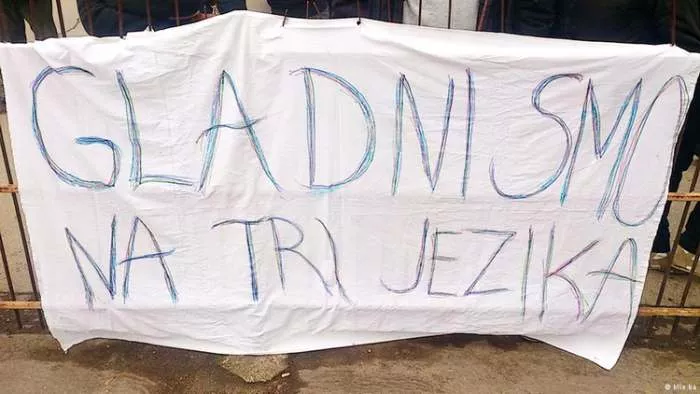 GLADNI SMO
NA TRI JEZIKA
© klix.ba